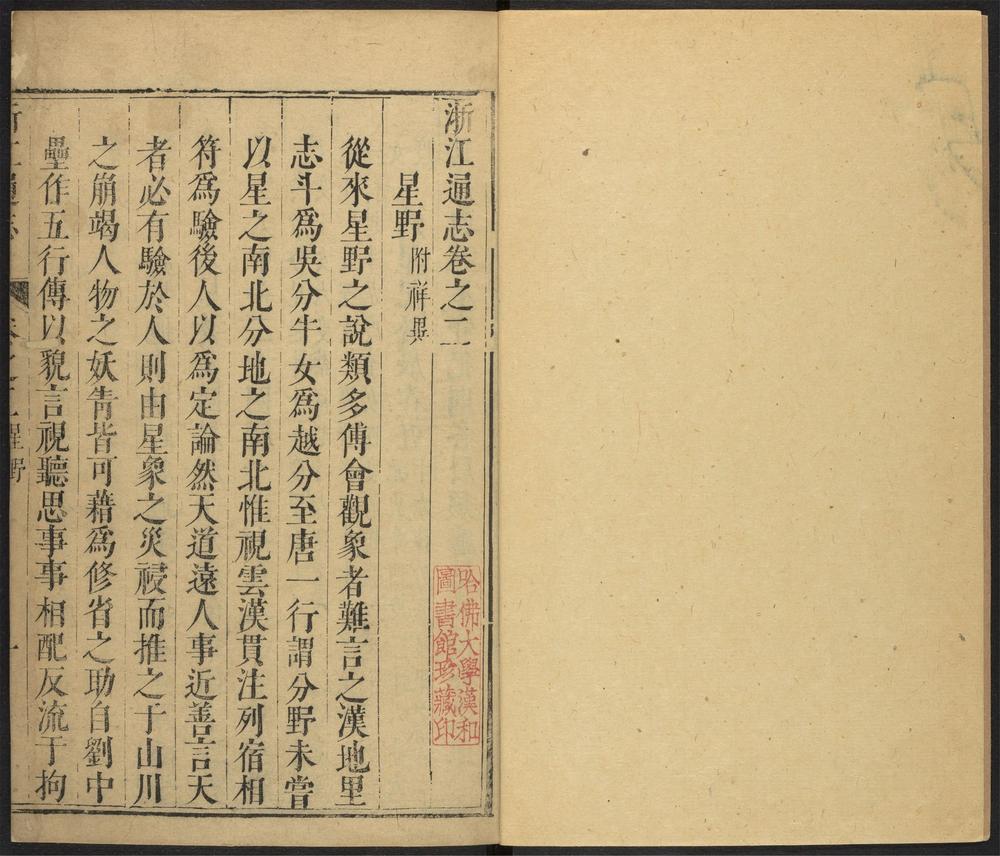 浙江通志卷之二
星野附祥異
從來星野之說類多傅會觀象者難言之漢地里
志斗爲吳分牛女爲越分至唐一行謂分野未嘗
以星之南北分地之南北惟視雲漢貫注列宿相
符爲驗後人以爲定論然天道遠人事近善言天
者必有驗於人則由星象之災祲而推之于山川
之崩竭人物之妖眚皆可藉爲修省之助自劉中
壘作五行傳以貌言視聽思事事相配反流于拘
浙江通志 卷之二星野 一
哈佛大學漢和
圖書館珍藏印